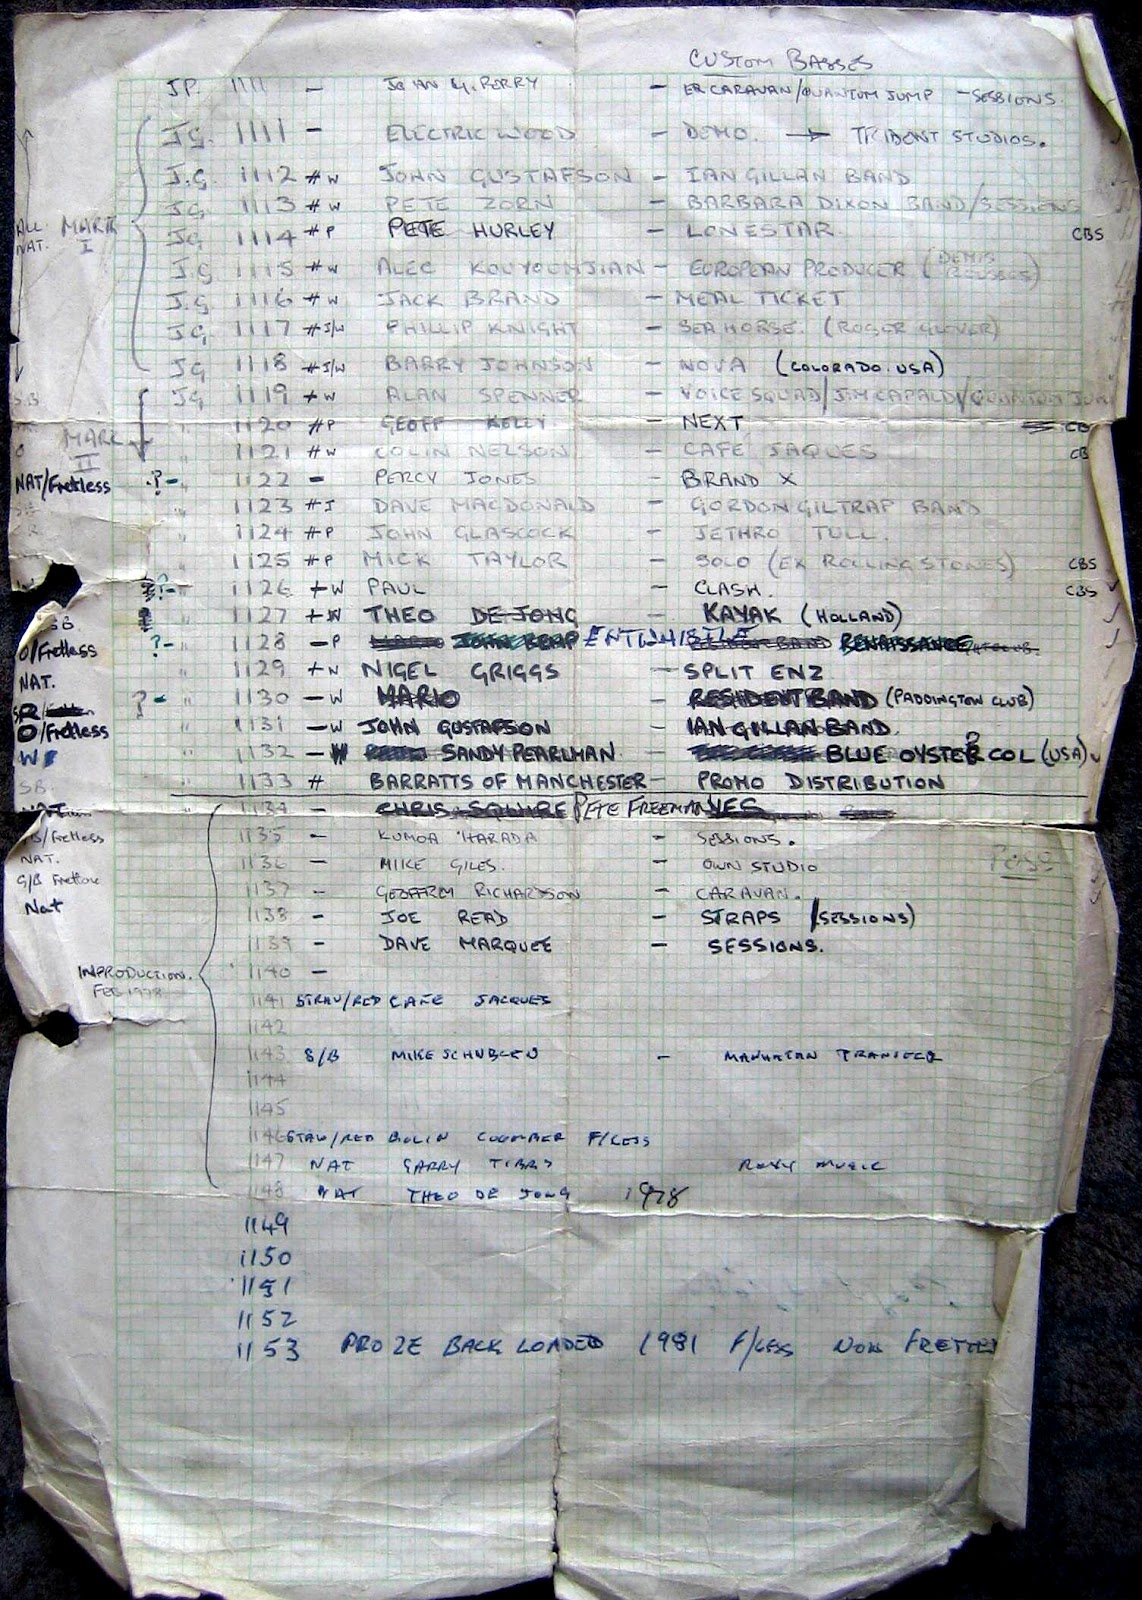 CUSTOM BASSES
JP. 1111 - JOHN G. PERRY - EX CARAVAN/QUANTUM JUMP - SESSIONS.
JG. 1111 - ELECTRIC WOOD - DEMO. → TRIDENT STUDIOS.
J.G. 1112 # W JOHN GUSTAFSON - IAN GILLAN BAND
JG 1113 # W PETE ZORN - BARBARA DIXON BAND/SESSIONS
ALL NAT. MARK I JG 1114 # P PETE HURLEY - LONESTAR. CBS
J.G 1115 # W ALEC KOUYOUMJIAN - EUROPEAN PRODUCER (DEMIS ROUSSOS)
J.G. 1116 # W JACK BRAND - MEAL TICKET
JG. 1117 # J/W PHILLIP KNIGHT - SEA HORSE. (ROGER GLOVER)
JG 1118 # J/W BARRY JOHNSON - NOVA (COLORADO. USA)
S.B JG 1119 + W ALAN SPENNER - VOICE SQUAD/JIM CAPALDI/QUANTUM JUM
" 1120 # P GEOFF KELLY - NEXT CB
O MARK II " 1121 # W COLIN NELSON - CAFE JAQUES CB
NAT/Fretless .?- " 1122 - PERCY JONES - BRAND X
" 1123 # J DAVE MACDONALD - GORDON GILTRAP BAND
" 1124 # P JOHN GLASCOCK - JETHRO TULL.
" 1125 # P MICK TAYLOR - SOLO (EX ROLLING STONES) CBS
?- " 1126 + W PAUL - CLASH. CBS ✓
SB. " 1127 + W THEO DE JONG - KAYAK (HOLLAND)
O/Fretless ?- " 1128 - P JOHN CAMP ENTWHISTLE RENAISSANCE
NAT. " 1129 + W NIGEL GRIGGS - SPLIT ENZ
?- " 1130 - W MARIO - RESIDENT BAND (PADDINGTON CLUB)
O/Fretless " 1131 - W JOHN GUSTAFSON - IAN GILLAN BAND.
W " 1132 - W SANDY PEARLMAN - BLUE OYSTER COL (USA) ✓
SB. " 1133 # BARRATTS OF MANCHESTER - PROMO DISTRIBUTION
NAT. 1134 - CHRIS SQUIRE PETE FREEMAN YES
/Fretless 1135 - KUMOA HARADA - SESSIONS.
NAT. 1136 - MIKE GILES. - OWN STUDIO
S/B Fretless 1137 - GEOFFREY RICHARDSON - CARAVAN.
Nat 1138 - JOE READ - STRAPS (SESSIONS)
1139 - DAVE MARQUEE - SESSIONS.
INPRODUCTION. FEB 1978 1140 -
1141 STRAW/RED CAFE JACQUES
1142
1143 S/B MIKE SCHNBLEN - MANHATAN TRANSFER
1144
1145
1146 STAW/RED BOLIN COCOMBER F/LESS
1147 NAT GARRY TIBBS ROXY MUSIC
1148 NAT THEO DE JONG 1978
1149
1150
1151
1152
1153 PROZE BACK LOADED 1981 F/LESS NOW FRETTED